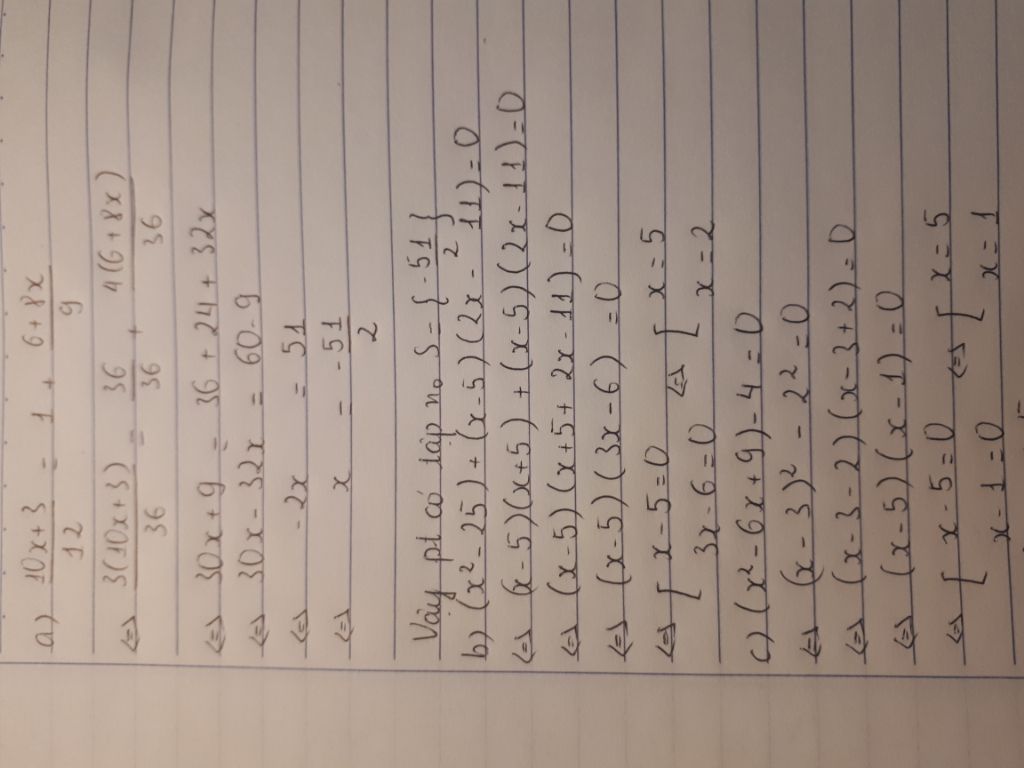 a) 10x+3/12 = 1 + 6+8x/9
<=> 3(10x+3)/36 = 36/36 + 4(6+8x)/36
<=> 30x+9 = 36+24+32x
<=> 30x-32x = 60-9
<=> -2x = 51
<=> x = -51/2
Vậy pt có tập n₀ S={-51/2}
b) (x²-25)+(x-5)(2x-11)=0
<=> (x-5)(x+5)+(x-5)(2x-11)=0
<=> (x-5)(x+5+2x-11)=0
<=> (x-5)(3x-6)=0
<=> [ x-5=0 <=> [ x=5
3x-6=0 x=2
c) (x²-6x+9)-4=0
<=> (x-3)²-2²=0
<=> (x-3-2)(x-3+2)=0
<=> (x-5)(x-1)=0
<=> [ x-5=0 <=> [ x=5
x-1=0 x=1